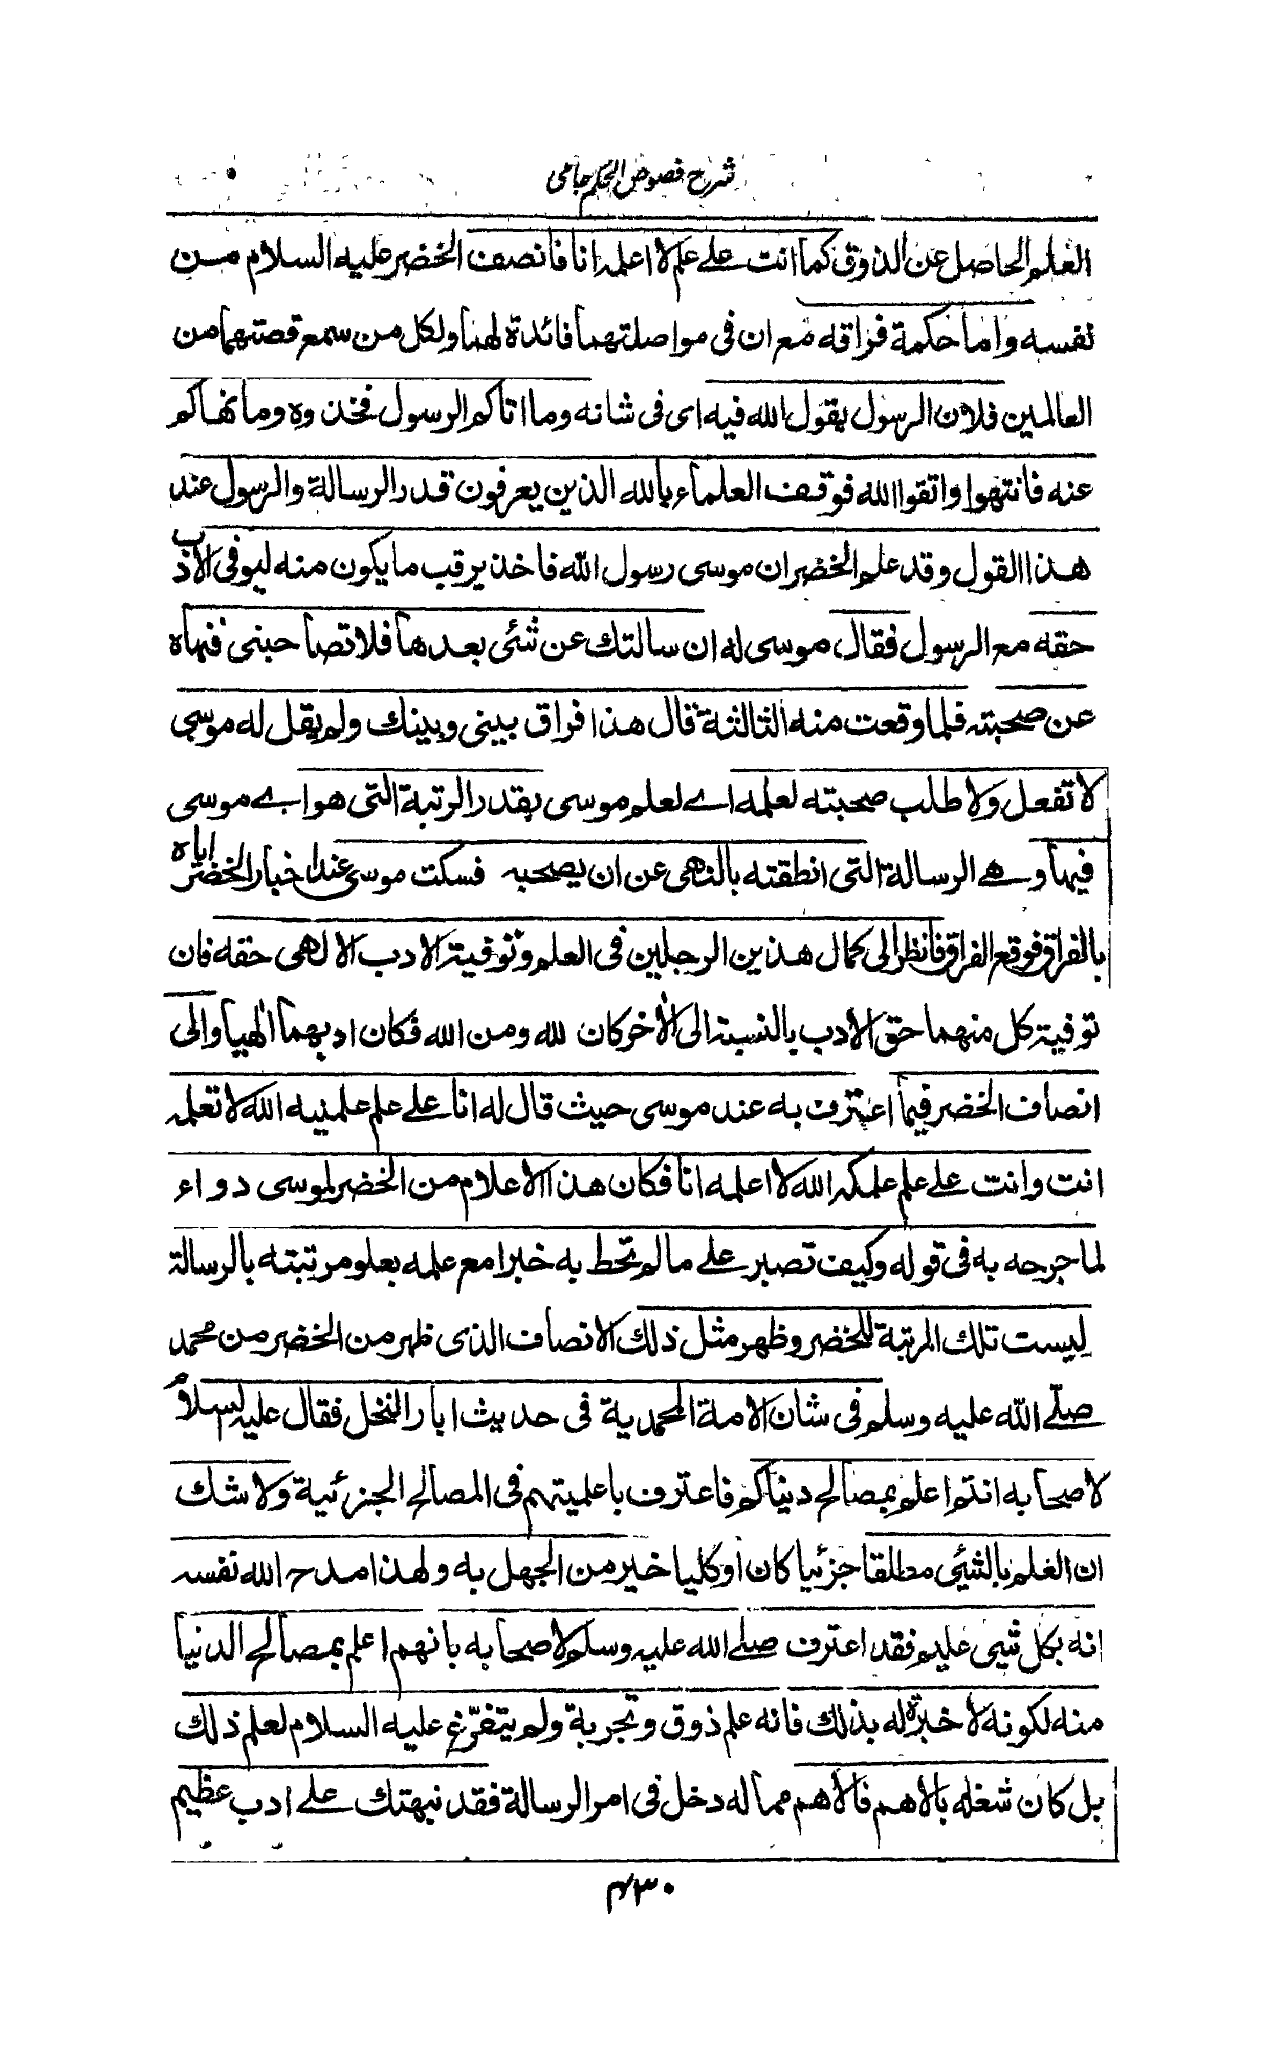 شرح فصوص الحكم جامى
العلم الحاصل عن الذوق كما انت على علم لا اعلمه انا فانصف الخضر عليه السلام من
نفسه واما حكمة فراقه مع ان فى مواصلتهما فائدة لهما ولكل من سمع قصتهما من
العالمين فلان الرسول يقول الله فيه اى فى شانه وما اتاكم الرسول فخذوه وما نهاكم
عنه فانتهوا واتقوا الله فوقف العلماء بالله الذين يعرفون قدر الرسالة والرسول عند
هذا القول وقد علم الخضر ان موسى رسول الله فاخذ يرقب ما يكون منه ليوفى الادب
حقه مع الرسول فقال موسى له ان سالتك عن شئى بعدها فلا تصاحبنى فنهاه
عن صحبته فلما وقعت منه الثالثة قال هذا فراق بينى وبينك ولم يقل له موسى
لا تفعل ولا طلب صحبته لعلمه اے لعلم موسى بقدر الرتبة التى هو اے موسى
فيها وهے الرسالة التى انطقته بالنهى عن ان يصحبه فسكت موسى عند اخبار الخضر اياه
بالفراق فوقع الفراق فانظر الى كمال هذين الرجلين فى العلم وتوفية الادب الالهى حقه فان
توفية كل منهما حق الادب بالنسبة الى الأخر كان لله ومن الله فكان ادبهما الٰهيا والى
انصاف الخضر فيما اعترف به عند موسى حيث قال له انا على علم علمنيه الله لا تعلمه
انت وانت على علم علمكه الله لا اعلمه انا فكان هذا الاعلام من الخضر لموسى دواء
لما جرحه به فى قوله وكيف تصبر على ما لم تحط به خبرا مع علمه بعلو مرتبته بالرسالة
ليست تلك المرتبة للخضر وظهر مثل ذلك الانصاف الذى ظهر من الخضر من محمد
صلّے الله عليه وسلم فى شان الامة المحمدية فى حديث ابار النخل فقال عليه السلام
لاصحابه انتم اعلم بمصالح دنياكم فاعترف باعلميتهم فى المصالح الجزئية ولا شك
ان العلم بالشئى مطلقا جزئيا كان او كليا خير من الجهل به ولهذا مدح الله نفسه
انه بكل شيى عليم فقد اعترف صلے الله عليه وسلم لاصحابه بانهم اعلم بمصالح الدنيا
منه لكونه لا خبرة له بذلك فانه علم ذوق وتجربة ولم يتفرّغ عليه السلام لعلم ذلك
بل كان شغله بالاهم فالاهم مما له دخل فى امر الرسالة فقد نبهتك علے ادب عظيم
۴۳۰